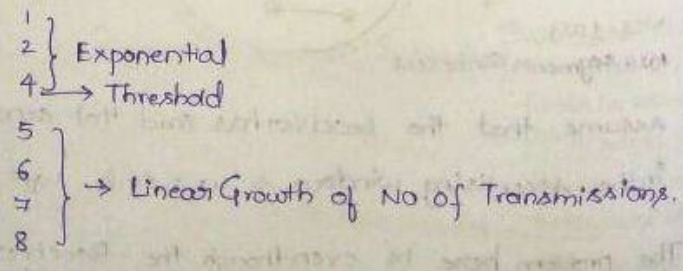 1
2 } Exponential
4 → Threshold
5
6
7 } → Linear Growth of No of Transmissions.
8